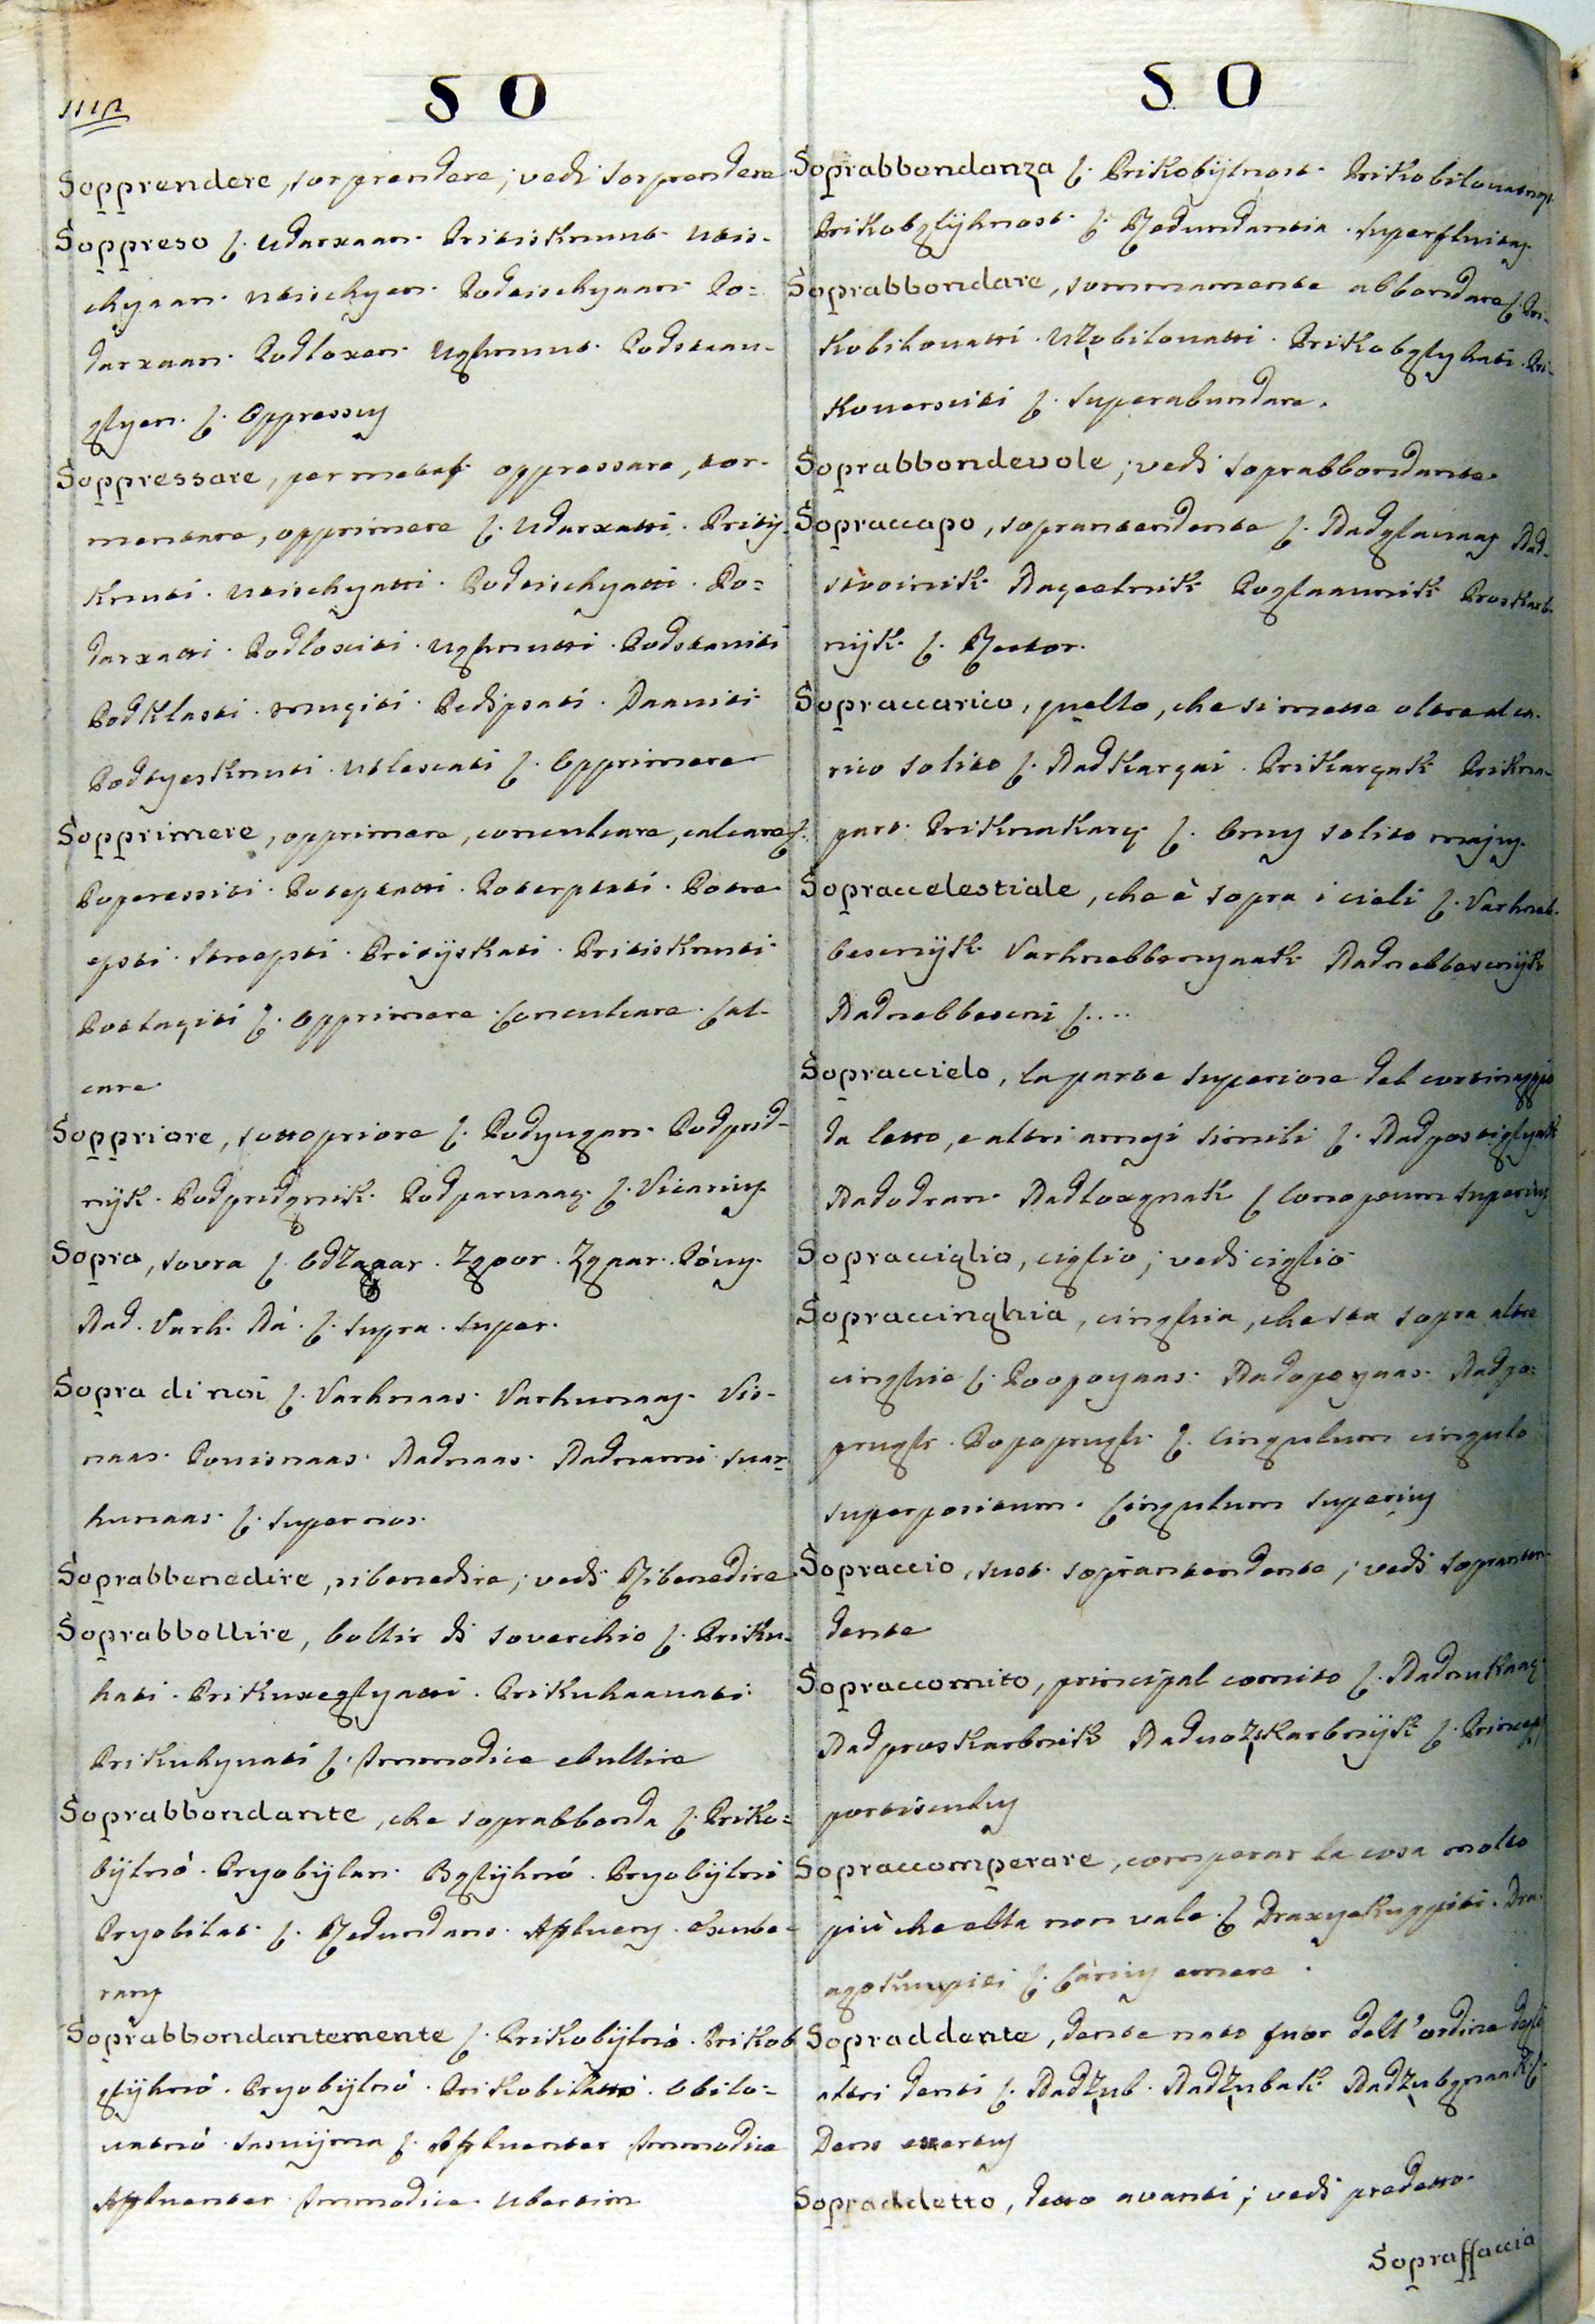 S O
Sopprendere, sorprendere; vedi sorprendere
Soppreso ʃ. Udarxaan. Pritisknut. Utis-
chyaan. Utischyen. Podtischyaan. Po=
darxaan. Podloxen. Ughnut. Podstaav-
glyen. ʃ. Oppressus
Soppressare, per metaf. oppressare, tor-
mentare, opprimere ʃ. Udarxatti. Pritij-
knuti. Utischyatti. Podtischyatti. Po=
darxatti. Podloxiti. Ughnutti. Podstaviti
Podklasti. Muçiti. Pedipsati. Daaviti
Podtyesknuti. Utlesciti ʃ. Opprimere
Sopprimere, opprimere, conculcare, calcare ʃ.
Poperessiti. Poteptatti. Poterptati. Potra-
epsti. Straepsti. Pritijskati. Pritisknuti
Potlaçiti ʃ. Opprimere. Conculcare. Cal-
care
Soppriore, sottopriore ʃ. Podyugan. Podprid-
nijk. Podpridgnik. Podparvaaç. ʃ. Vicarius
Sopra, sovra ʃ. Odzgaar. Zgoor. Zgaar. Póvis.
Nad. Varh. Ná. ʃ. Supra. Super.
Sopra di noi ʃ. Varhnaas. Varhunaas. Vis-
naas. Povisnaas. Nadnaas. Nadnami. Svar-
hunaas. ʃ. Super nos.
Soprabbenedire, ribenedire; vedi Ribenedire
Soprabbollire, bollir di soverchio ʃ. Priku-
hati. Prikuxeglyatti. Prikuhaavati
Prikuhyvati ʃ. Immodice ebullire
Soprabbondante, che soprabbonda ʃ. Priko=
bijlnó. Pryobijlan. Bglijhnó. Pryobijlni
Pryobilat. ʃ. Redundans. Affluens. Exube-
rans
Soprabbondantemente ʃ. Prikobijlnó. Prikob
glijhnó. Pryobijlnó. Prikobilattó. Obilo=
vatnó. Sasvijma ʃ. Affluenter Immodice
Affluenter. Immodice. Ubertim
S O
Soprabbondanza ʃ. Prikobijlnost. Prikobilovatnost
Prikobglijhnost. ʃ. Redundantia. Superfluitas
Soprabbondare, sommamente abbondare ʃ. Pri-
kobilovatti. Uzobilovatti. Prikobglyhati. Pri-
koversciti ʃ. Superabundare.
Soprabbondevole; vedi soprabbondante
Sopraccapo, soprantendente ʃ. Nadglavaaç Nad-
stvoinik. Naçelnik Poglaavnik Proskarb-
nijk. ʃ. Rector.
Sopraccarico, quello, che si mette oltre al ca-
rico solito ʃ. Nadkargai. Prikargak Prikna-
part. Priknakarg ʃ. Onus solito majus
Sopraccelestiale, che è sopra i cieli ʃ. Varhneb-
bescnijk. Varhnebbenyaak. Nadnebbescnijk
Nadnebbescni ʃ....
Sopraccielo, la parte superiore del cortinaggio
da letto, e altri arnesi simili ʃ. Nadpostiglyak
Nadodran. Nadloxgnak ʃ Conopeum superius
Sopracciglio, ciglio; vedi ciglio
Sopraccinghia, cinghia, che sta sopra altre
cinghie ʃ. Poopoyaas. Nadopoyaas. Nadpo=
prugh. Popoprugh. ʃ. Cingulum cingulo
superpositum. Cingulum superius
Sopraccio, sust. soprantendente; vedi sopranten-
dente
Sopraccomito, principal comito ʃ. Nadnukaaç
Nadproskarbnik Nadvozskarbnijk ʃ. Princeps
portisculus
Sopraccomperare, comperar la cosa molto
più che ella non vale. ʃ Draxyekuppiti. Dra-
agokuupiti ʃ. Cárius emere.
Sopraddente, dente nato fuor dell'ordine degli
altri denti ʃ. Nadzub. Nadzubak Nadzubgnaak ʃ.
Dens exertus
Sopraddetto, detto avanti; vedi predetto.
Sopraffaccia